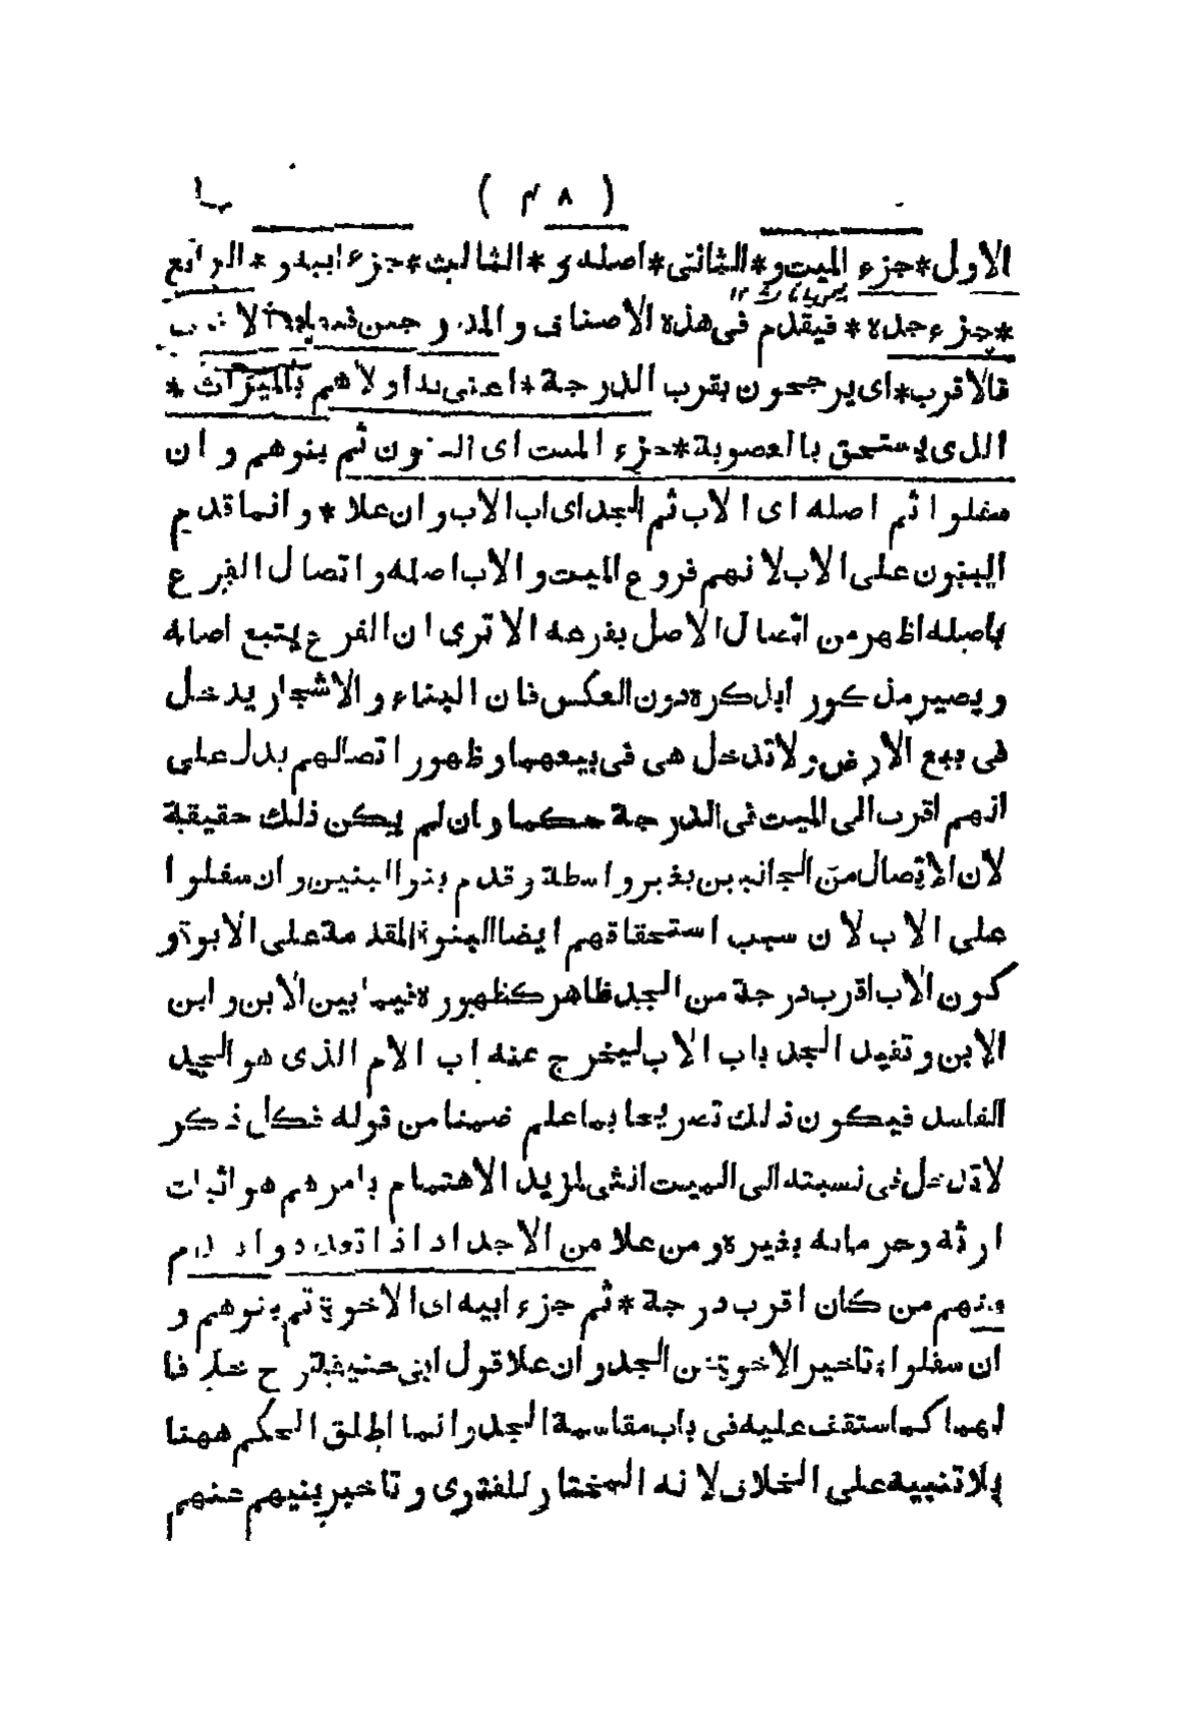 ( ٤٨ )
الاول * جزء الميت و * الثانى * اصله و * الثالث * جزء ابيه و * الرابع
* جزء جده * فيقدم فى هذه الاصناف والمندرجين فيها الاقرب
فالاقرب * اى يرجحون بقرب الدرجة * اعنى به اولاهم بالميراث *
الذى يستحق بالعصوبة * جزء الميت اى البنون ثم بنوهم وان
سفلوا ثم اصله اى الاب ثم الجد اى اب الاب وان علا * وانما قدم
البنون على الاب لانهم فروع الميت والاب اصله واتصال الفرع
باصله اظهر من اتصال الاصل بفرعه الا ترى ان الفرع يتبع اصله
ويصير مذكورا بذكره دون العكس فان البناء والاشجار يدخل
فى بيع الارض ولا تدخل هى فى بيعهما وظهور اتصالهم يدل على
انهم اقرب الى الميت فى الدرجة حكما وان لم يكن ذلك حقيقة
لان الاتصال من الجانبين بغير واسطة وقدم بنو البنين وان سفلوا
على الاب لان سبب استحقاقهم ايضا البنوة المقدمة على الابوة و
كون الاب اقرب درجة من الجد ظاهر كظهوره فيما بين الابن وابن
الابن وتقييد الجد باب الاب ليخرج عنه اب الام الذى هو الجد
الفاسد فيكون ذلك تصريحا بما علم ضمنا من قوله فكل ذكر
لا تدخل فى نسبته الى الميت انثى لمزيد الاهتمام بامرهم هو اثبات
ارثه وحرمانه بغيره ومن علا من الاجداد اذا تعددوا قدم
منهم من كان اقرب درجة * ثم جزء ابيه اى الاخوة ثم بنوهم و
ان سفلوا تاخير الاخوة عن الجد وان علا قول ابى حنيفة رح خلافا
لهما كما استقف عليه فى باب مقاسمة الجد وانما اطلق الحكم ههنا
بلا تنبيه على الخلاف لانه المختار للفتوى وتاخير بنيهم عنهم